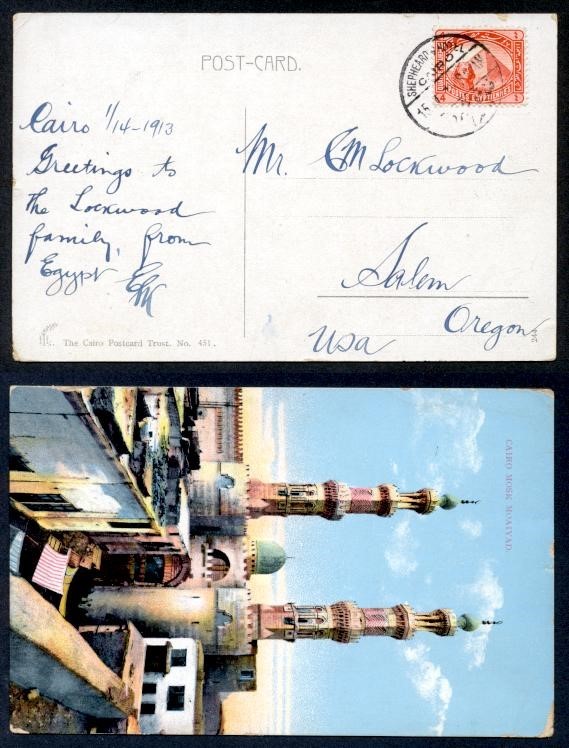 POST-CARD.
SHEPHEARD'S HOTEL
CAIRO
POSTES EGYPTIENNES
4
4
Cairo 1/14-1913
Greetings to
the Lockwood
family, from
Egypt
Mr. CM Lockwood
Salem
Oregon
USA
The Cairo Postcard Trust. No. 451.
244
CAIRO MOSK MOAIYAD.